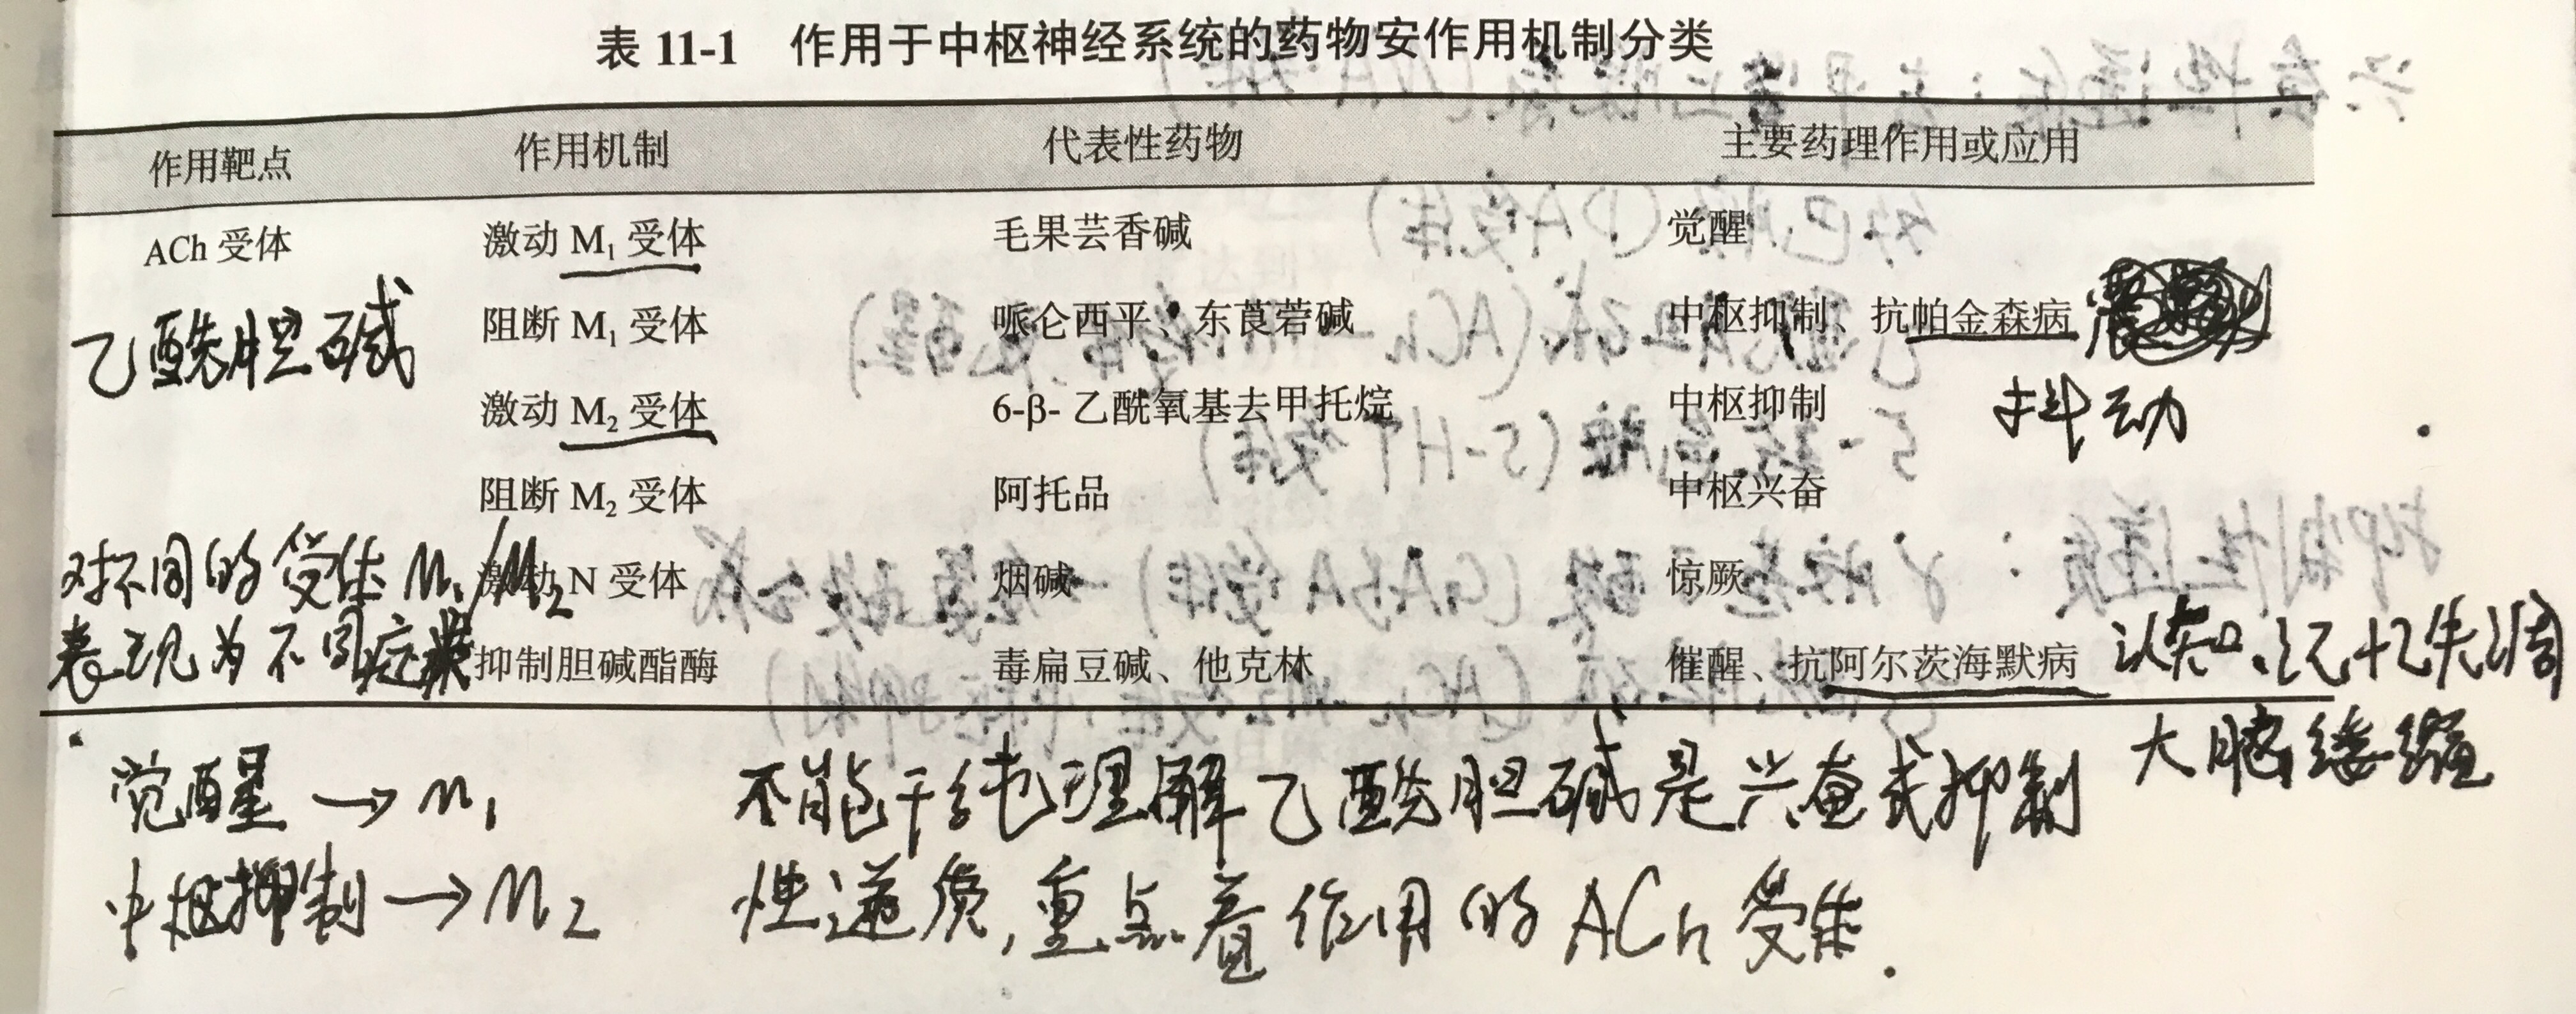 表 11-1 作用于中枢神经系统的药物安作用机制分类
作用靶点 作用机制 代表性药物 主要药理作用或应用
ACh 受体 激动 M₁ 受体 毛果芸香碱 觉醒
乙酰胆碱 阻断 M₁ 受体 哌仑西平、东莨菪碱 中枢抑制、抗帕金森病
激动 M₂ 受体 6-β- 乙酰氧基去甲托烷 中枢抑制 抖动
阻断 M₂ 受体 阿托品 中枢兴奋
对不同的受体 M₁/M₂ 激动 N 受体 烟碱 惊厥
表现为不同症状 抑制胆碱酯酶 毒扁豆碱、他克林 催醒、抗阿尔茨海默病 认知、记忆失调
大脑萎缩
觉醒 → M₁ 不能干纯理解乙酰胆碱是兴奋或抑制
中枢抑制 → M₂ 性递质,重点看作用的 ACh 受体.